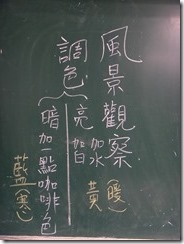 風景觀察
調色
亮加水
加白
黃(暖)
暗加一點咖啡色
藍(寒)